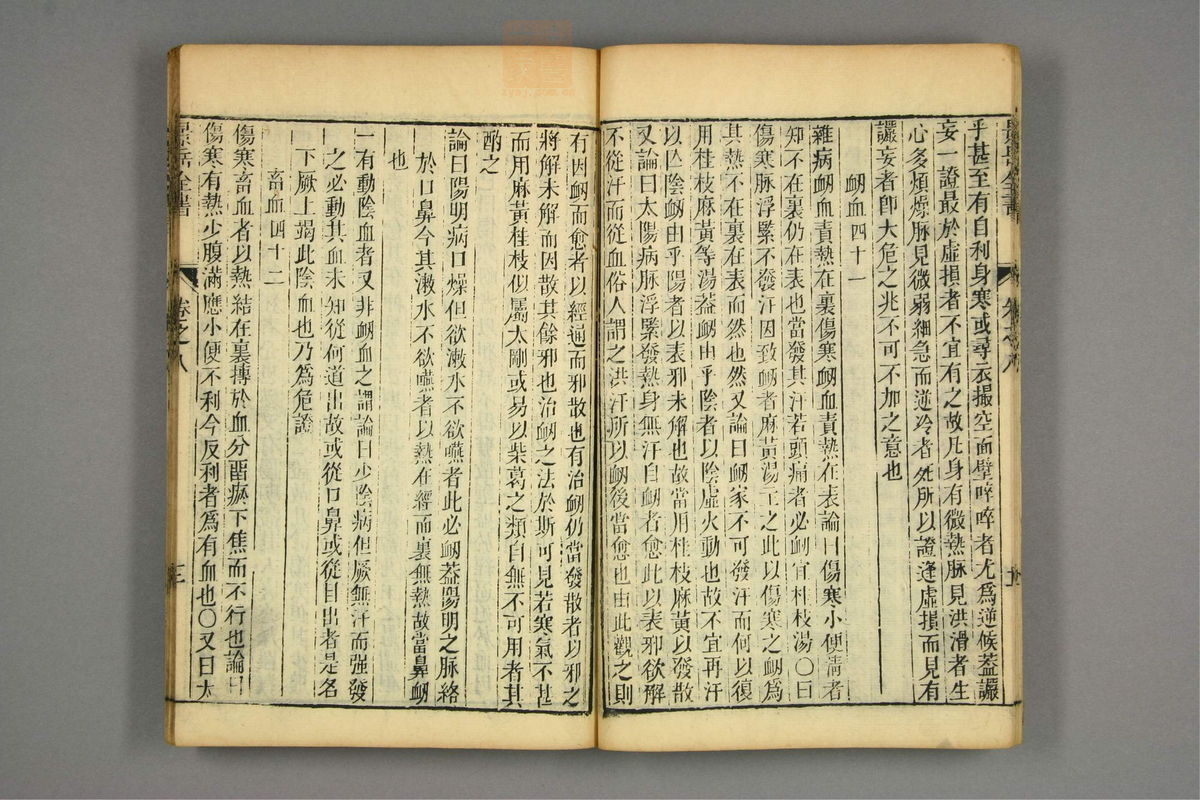 乎甚至有自利身寒或尋衣撮空面壁啐啐者尤爲逆候葢譫
妄一證最於虛損者不宜有之故凡身有微熱脉見洪滑者生
心多煩燥脉見微弱細急而逆冷者死所以證逢虛損而見有
譫妄者卽大危之兆不可不加之意也
衂血四十一
雜病衂血責熱在裏傷寒衂血責熱在表論曰傷寒小便淸者
知不在裏仍在表也當發其汗若頭痛者必衂宜桂枝湯〇曰
傷寒脉浮緊不發汗因致衂者麻黃湯主之此以傷寒之衂爲
其熱不在裏在表而然也然又論曰衂家不可發汗而何以復
用桂枝麻黃等湯葢衂由乎陰者以陰虛火動也故不宜再汗
以亡陰衂由乎陽者以表邪未解也故當用桂枝麻黃以發散
又論曰太陽病脉浮緊發熱身無汗自衂者愈此以表邪欲解
不從汗而從血俗人謂之洪汗所以衂後當愈也由此觀之則
有因衂而愈者以經通而邪散也有治衂仍當發散者以邪之
將解未解而因散其餘邪也治衂之法於斯可見若寒氣不甚
而用麻黃桂枝似屬太剛或易以柴葛之類自無不可用者其
酌之
論曰陽明病口燥但欲漱水不欲嚥者此必衂葢陽明之脉絡
於口鼻今其漱水不欲嚥者以熱在經而裏無熱故當鼻衂
也
一有動陰血者又非衂血之謂論曰少陰病但厥無汗而强發
之必動其血未知從何道出故或從口鼻或從目出者是名
下厥上竭此陰血也乃爲危證
畜血四十二
傷寒畜血者以熱結在裏搏於血分畱瘀下焦而不行也論曰
傷寒有熱少腹滿應小便不利今反利者爲有血也〇又曰太
景岳全書
卷之八